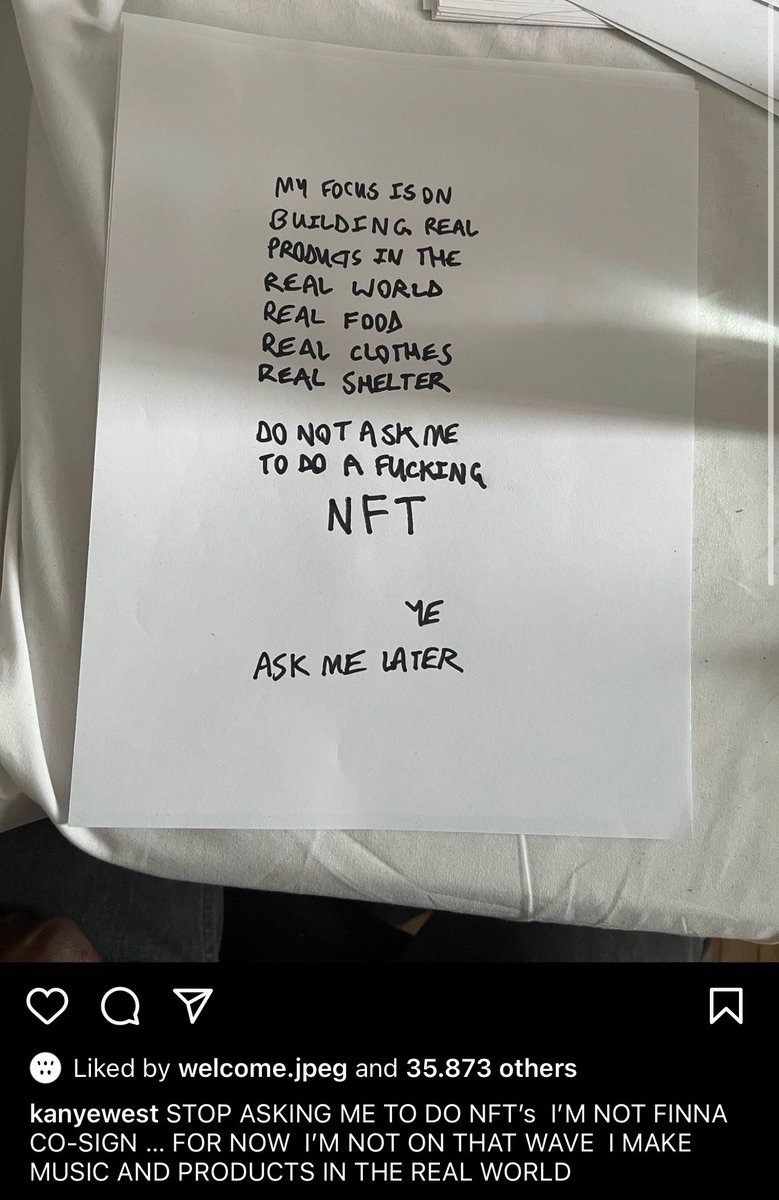 MY FOCUS IS ON
BUILDING REAL
PRODUCTS IN THE
REAL WORLD
REAL FOOD
REAL CLOTHES
REAL SHELTER
DO NOT ASK ME
TO DO A FUCKING
NFT
YE
ASK ME LATER
Liked by welcome.jpeg and 35.873 others
kanyewest STOP ASKING ME TO DO NFT’s I’M NOT FINNA
CO-SIGN ... FOR NOW I’M NOT ON THAT WAVE I MAKE
MUSIC AND PRODUCTS IN THE REAL WORLD